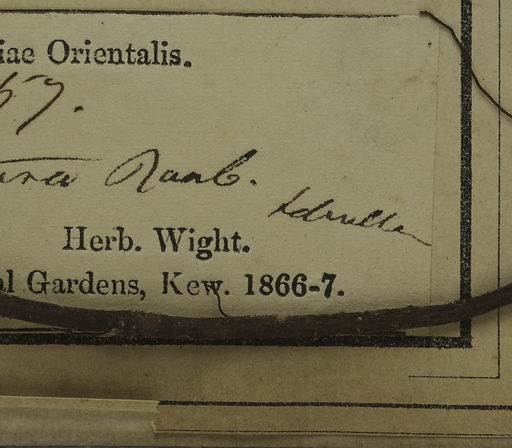 iae Orientalis.
57.
Roxb.
Herb. Wight.
al Gardens, Kew. 1866-7.